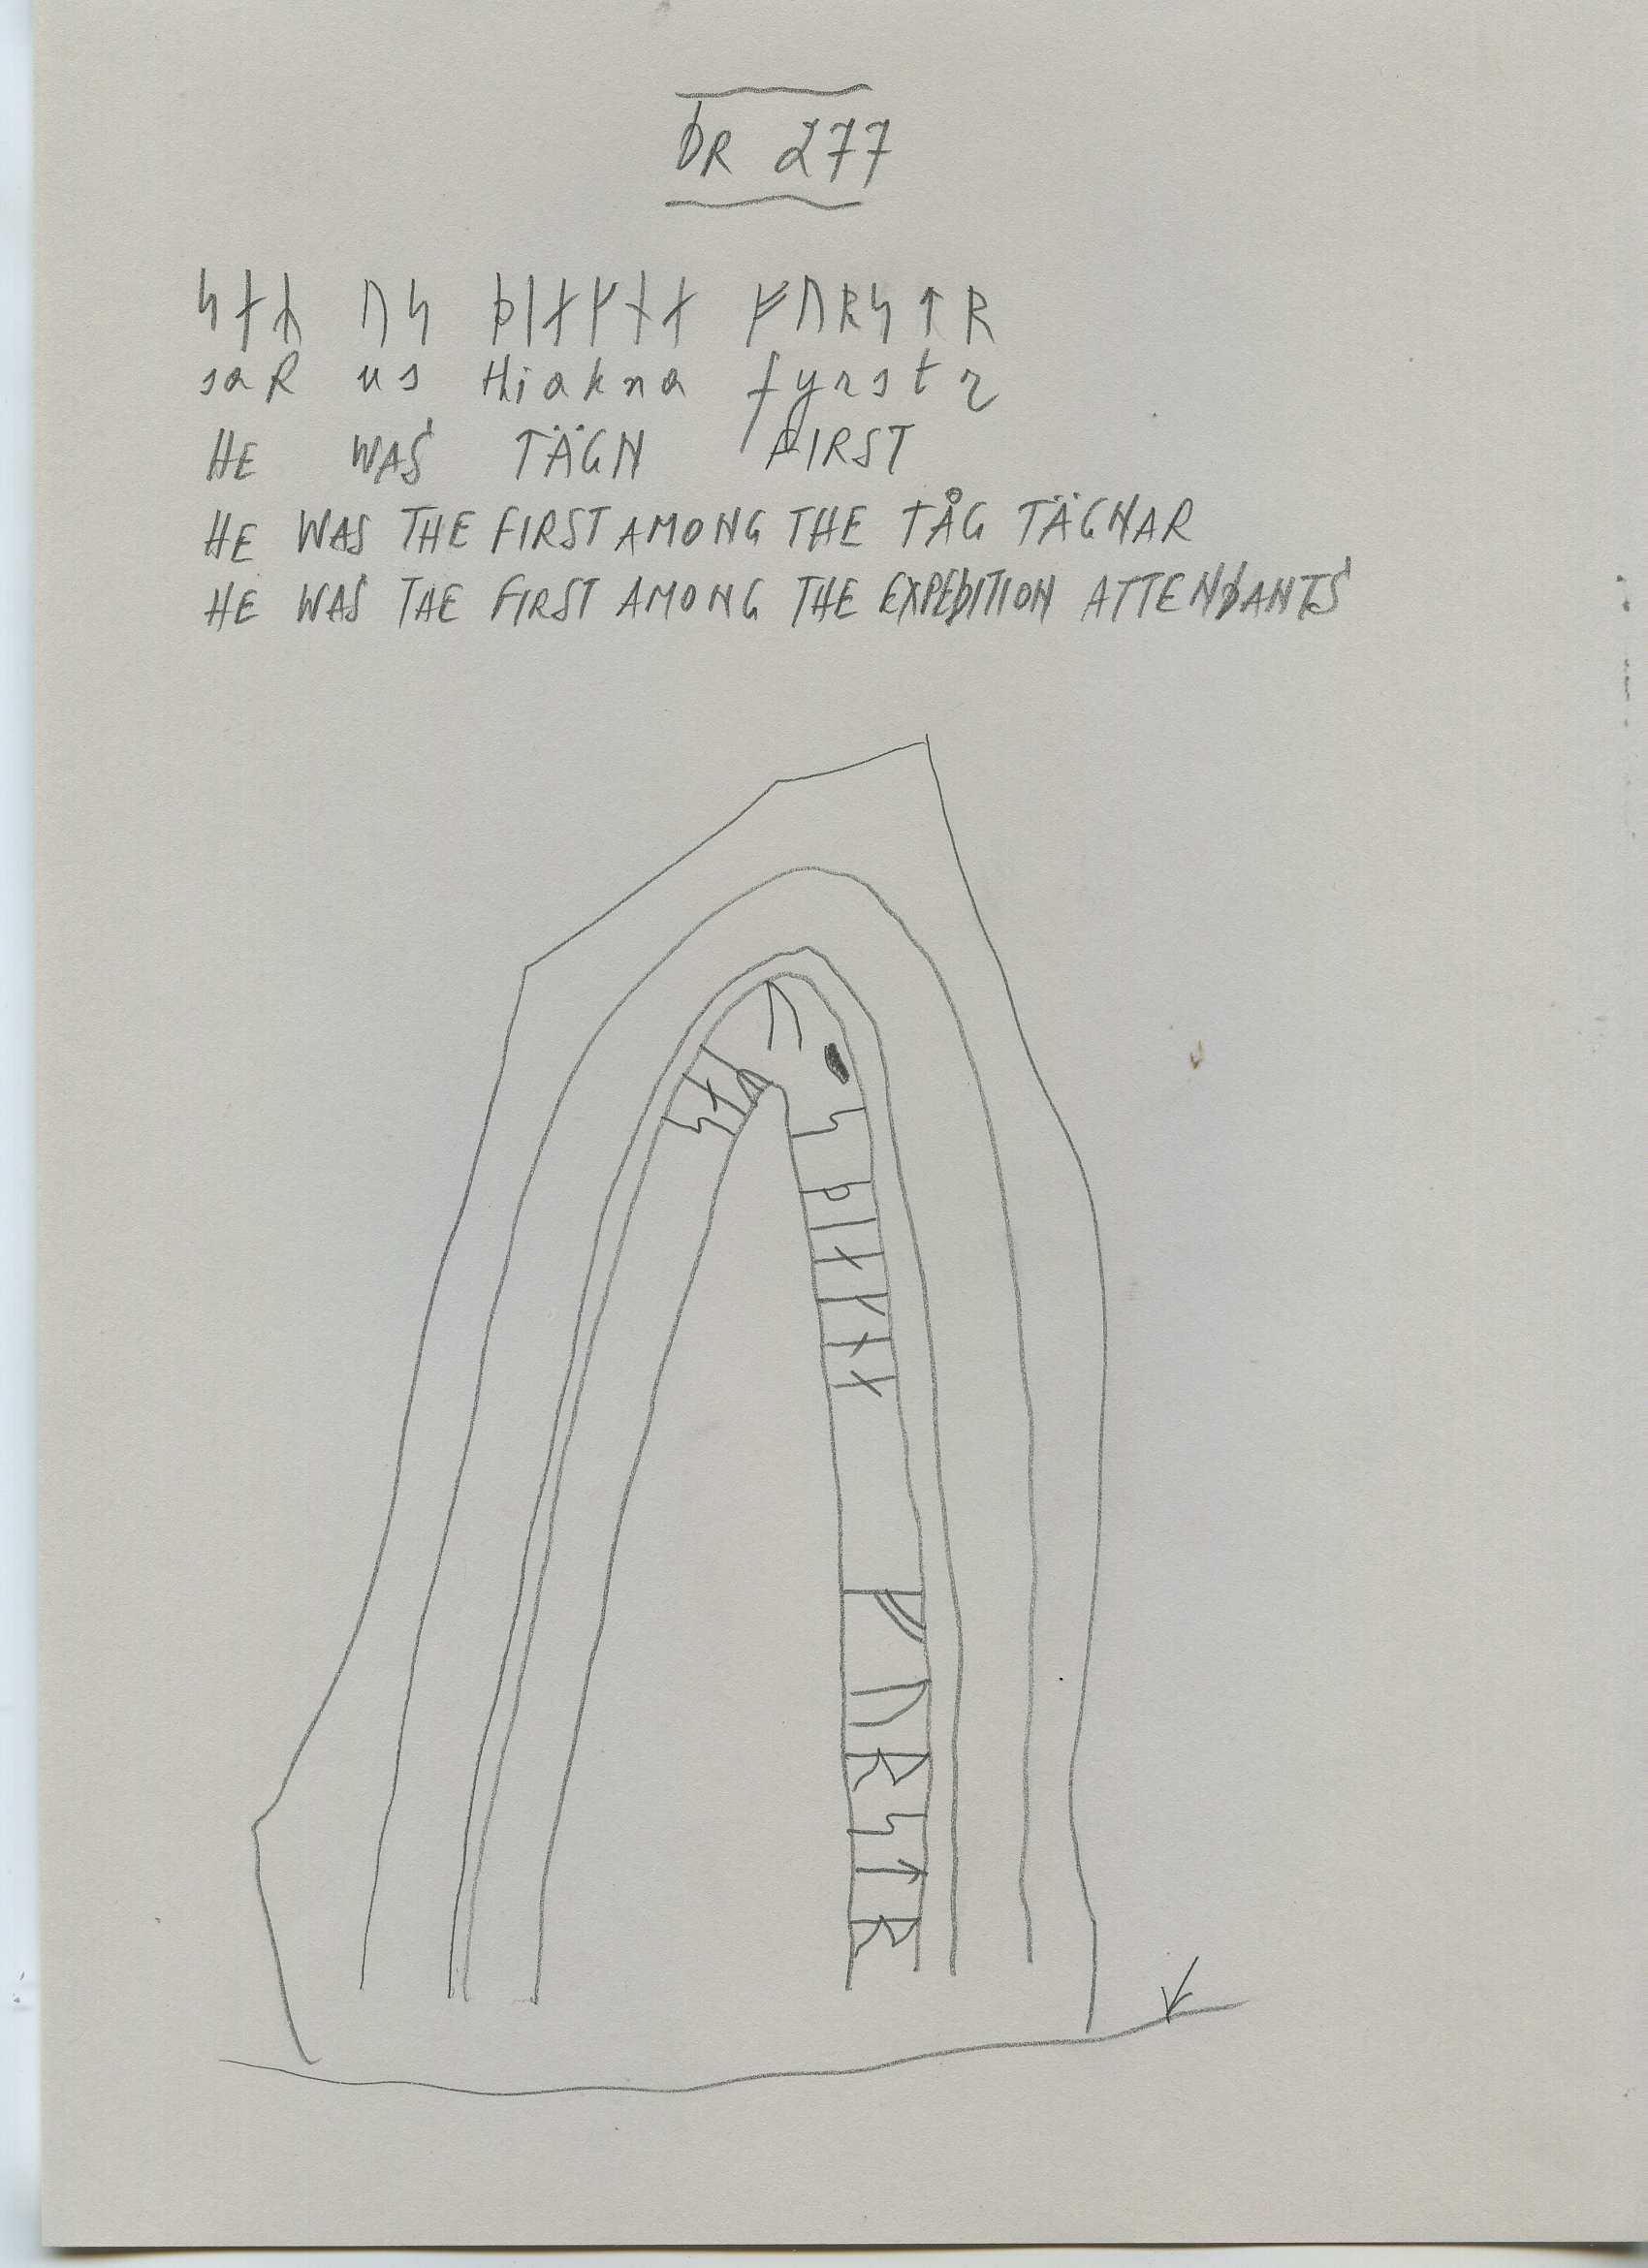 DR 277
ᛋᛅᛦ ᚢᛋ ᚦᛁᛅᚴᚾᛅ ᚠᚢᚱᛋᛏᚱ
saR us thiakna fyrstr
HE WAS TÄGN FIRST
HE WAS THE FIRST AMONG THE TÅG TÄGNAR
HE WAS THE FIRST AMONG THE EXPEDITION ATTENDANTS
ᛋᛅᛦ ᚢᛋ ᚦᛁᛅᚴᚾᛅ ᚠᚢᚱᛋᛏᚱ